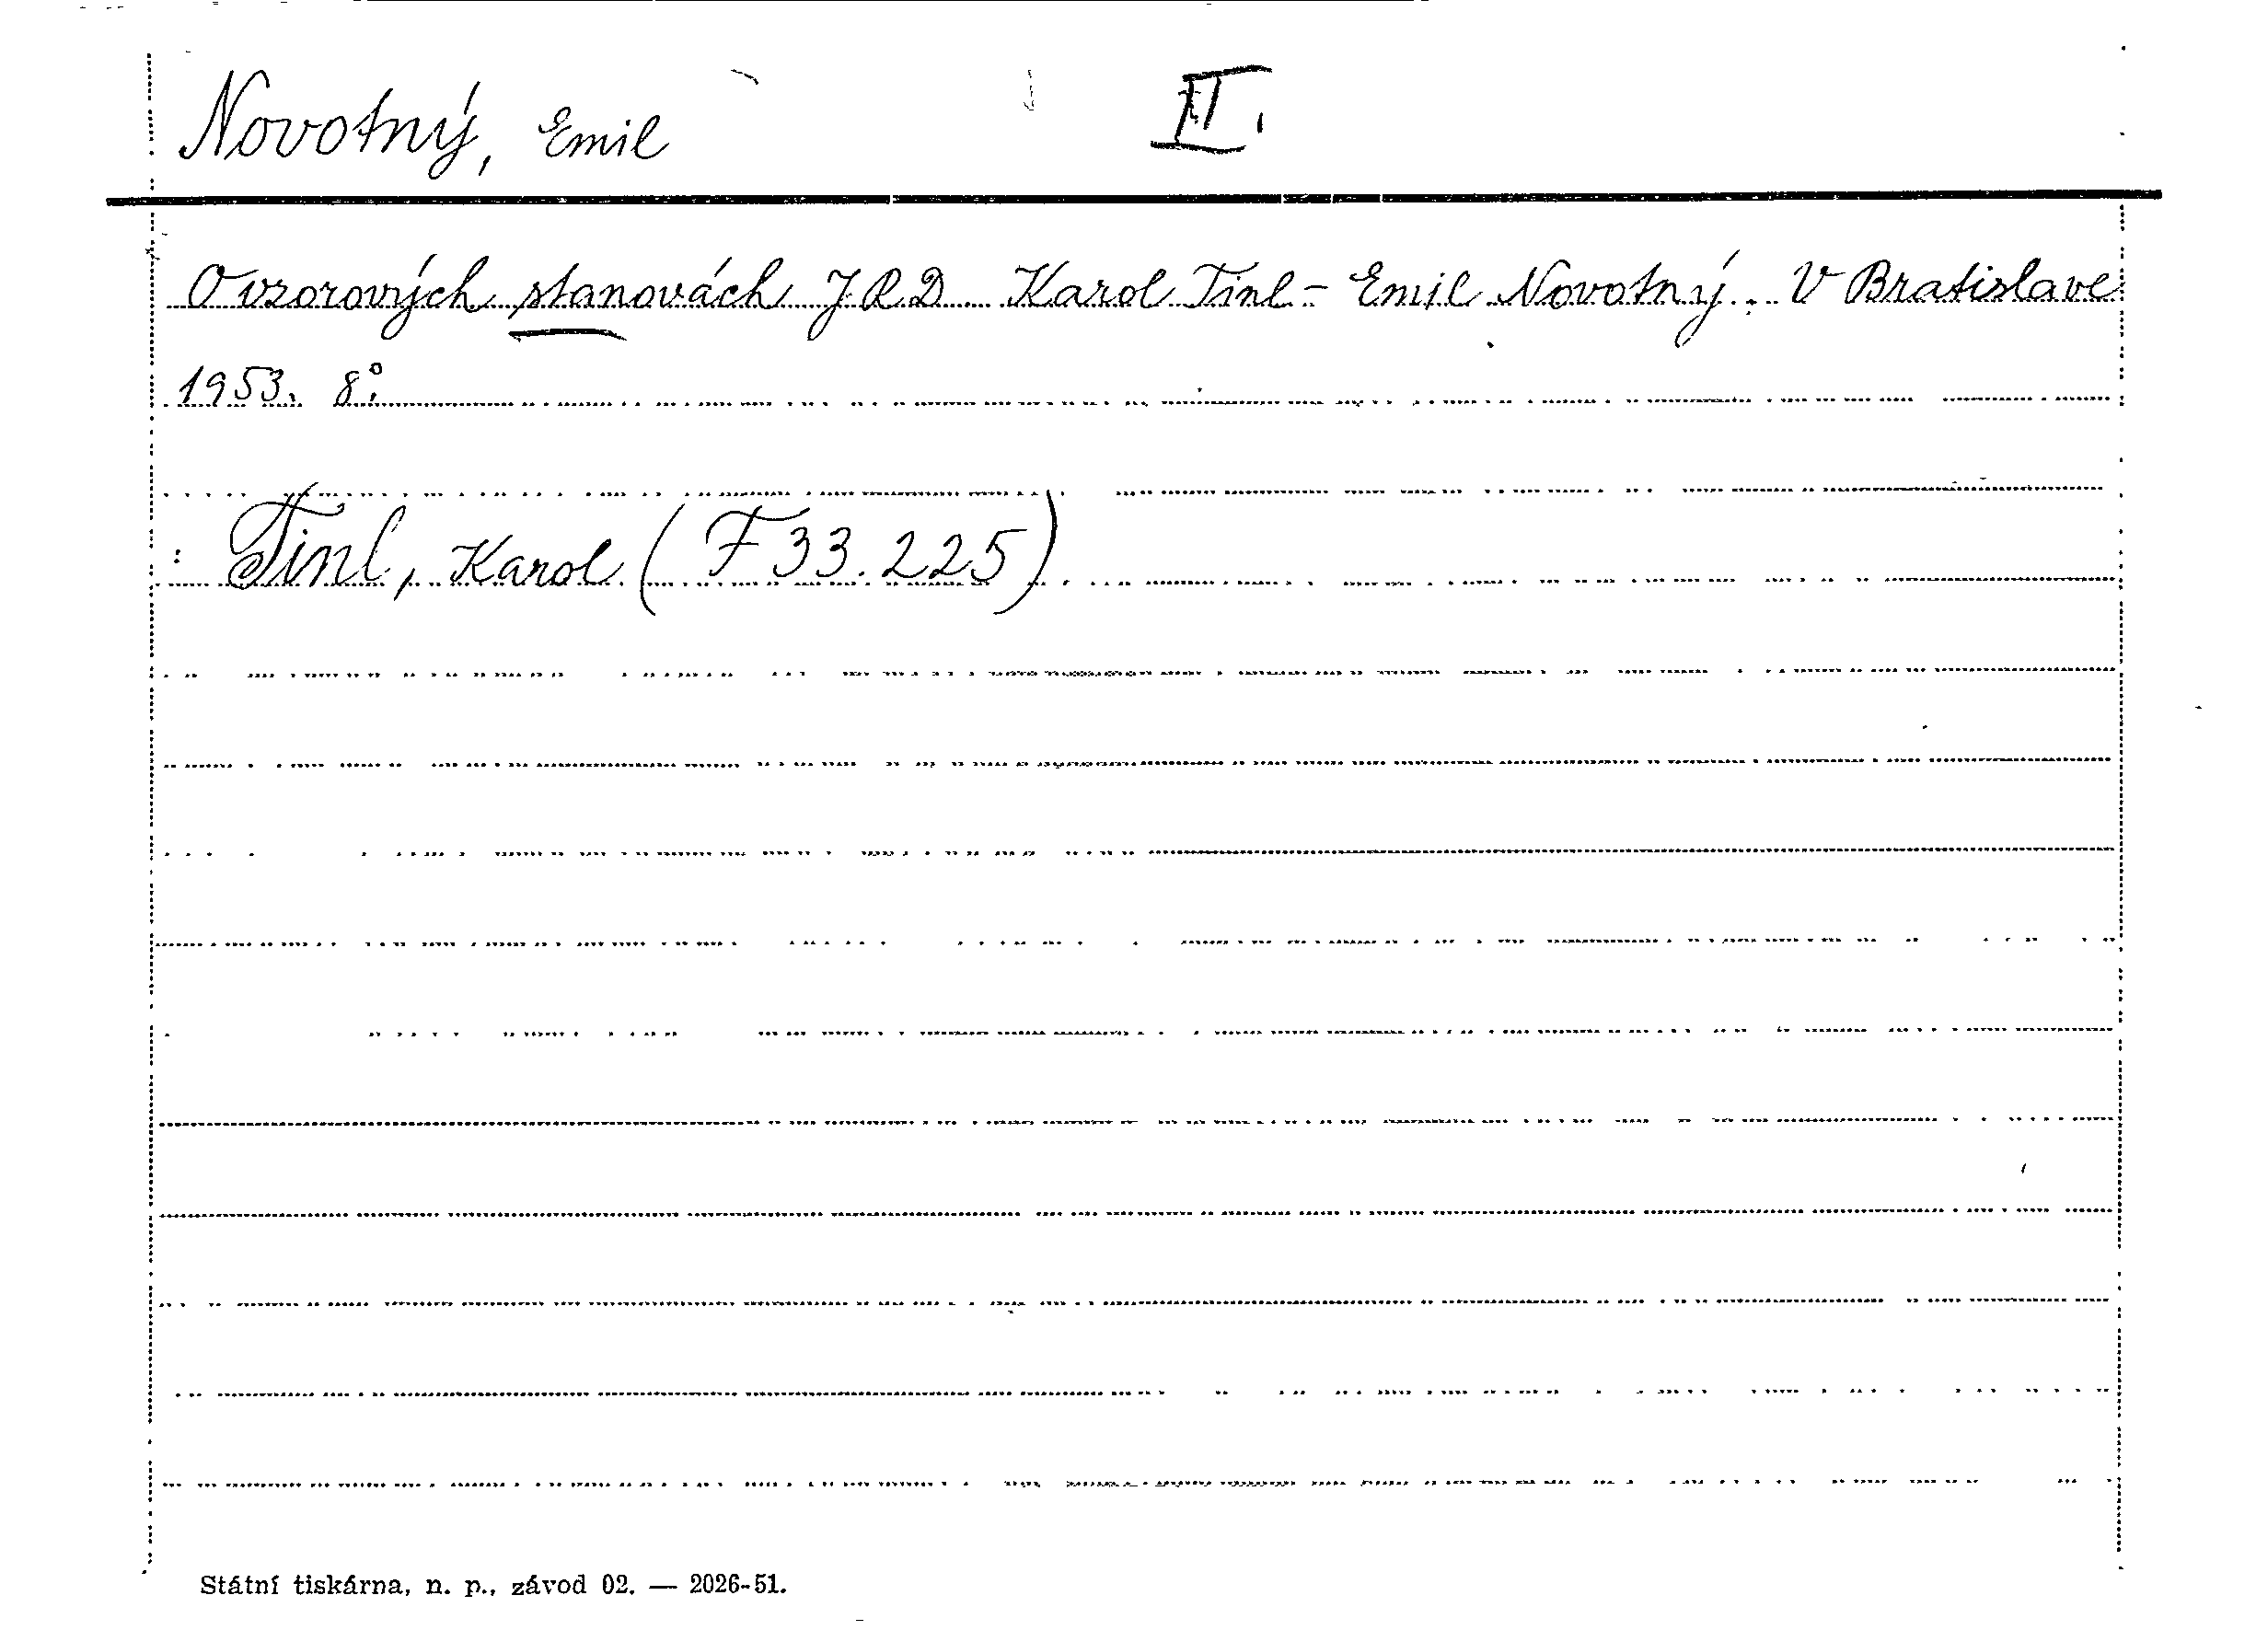 Novotný, Emil II.
O vzorových stanovách JRD. Karol Tinl - Emil Novotný. V Bratislave
1953. 8°.
: Tinl, Karol (F 33.225)
Státní tiskárna, n. p., závod 02. — 2026-51.